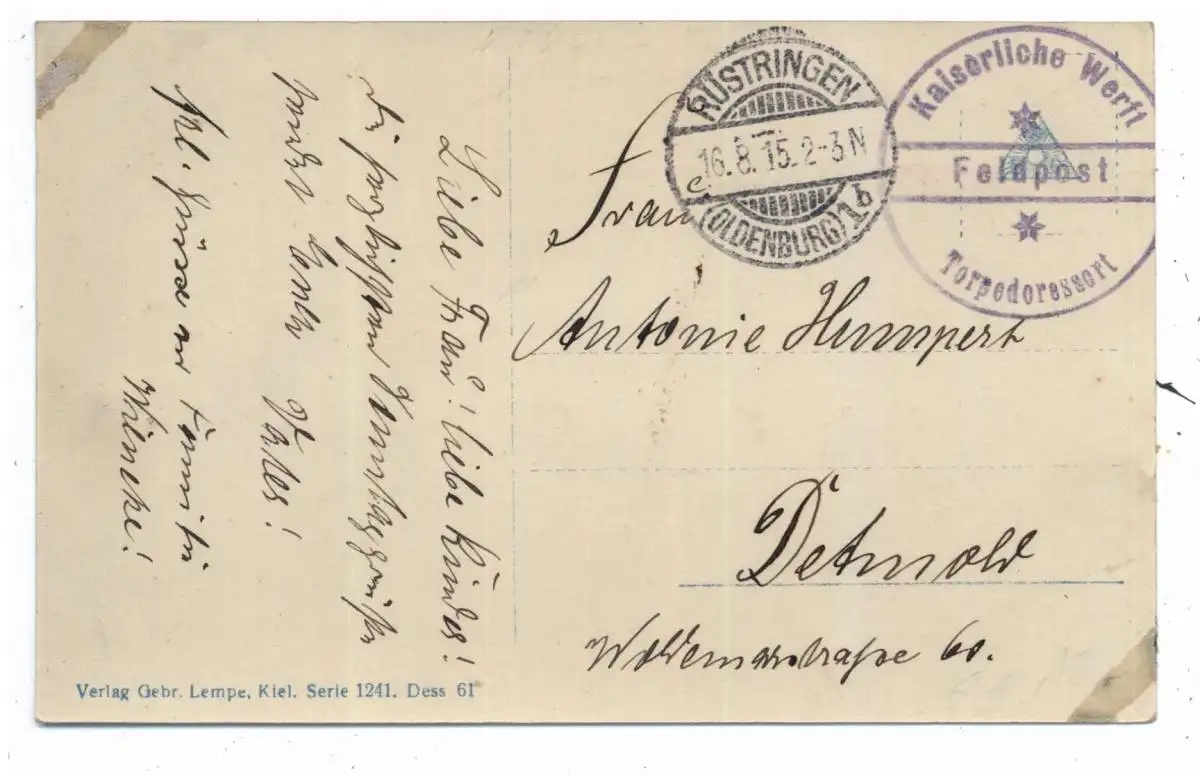 Liebe Frau! liebe Kinder!
Die herzlichsten Sonntagsgrüße
sendet Euch Vater!
Hl. Grüße an Familie
Wilneke!
RÜSTRINGEN
16.8.15. 2-3 N
(OLDENBURG) 1b
Kaiserliche Werft
Feldpost
Torpedoressort
Frau
Antonie Humpert
Detmold
Woldemarstraße 60.
Verlag Gebr. Lempe, Kiel. Serie 1241. Dess 61